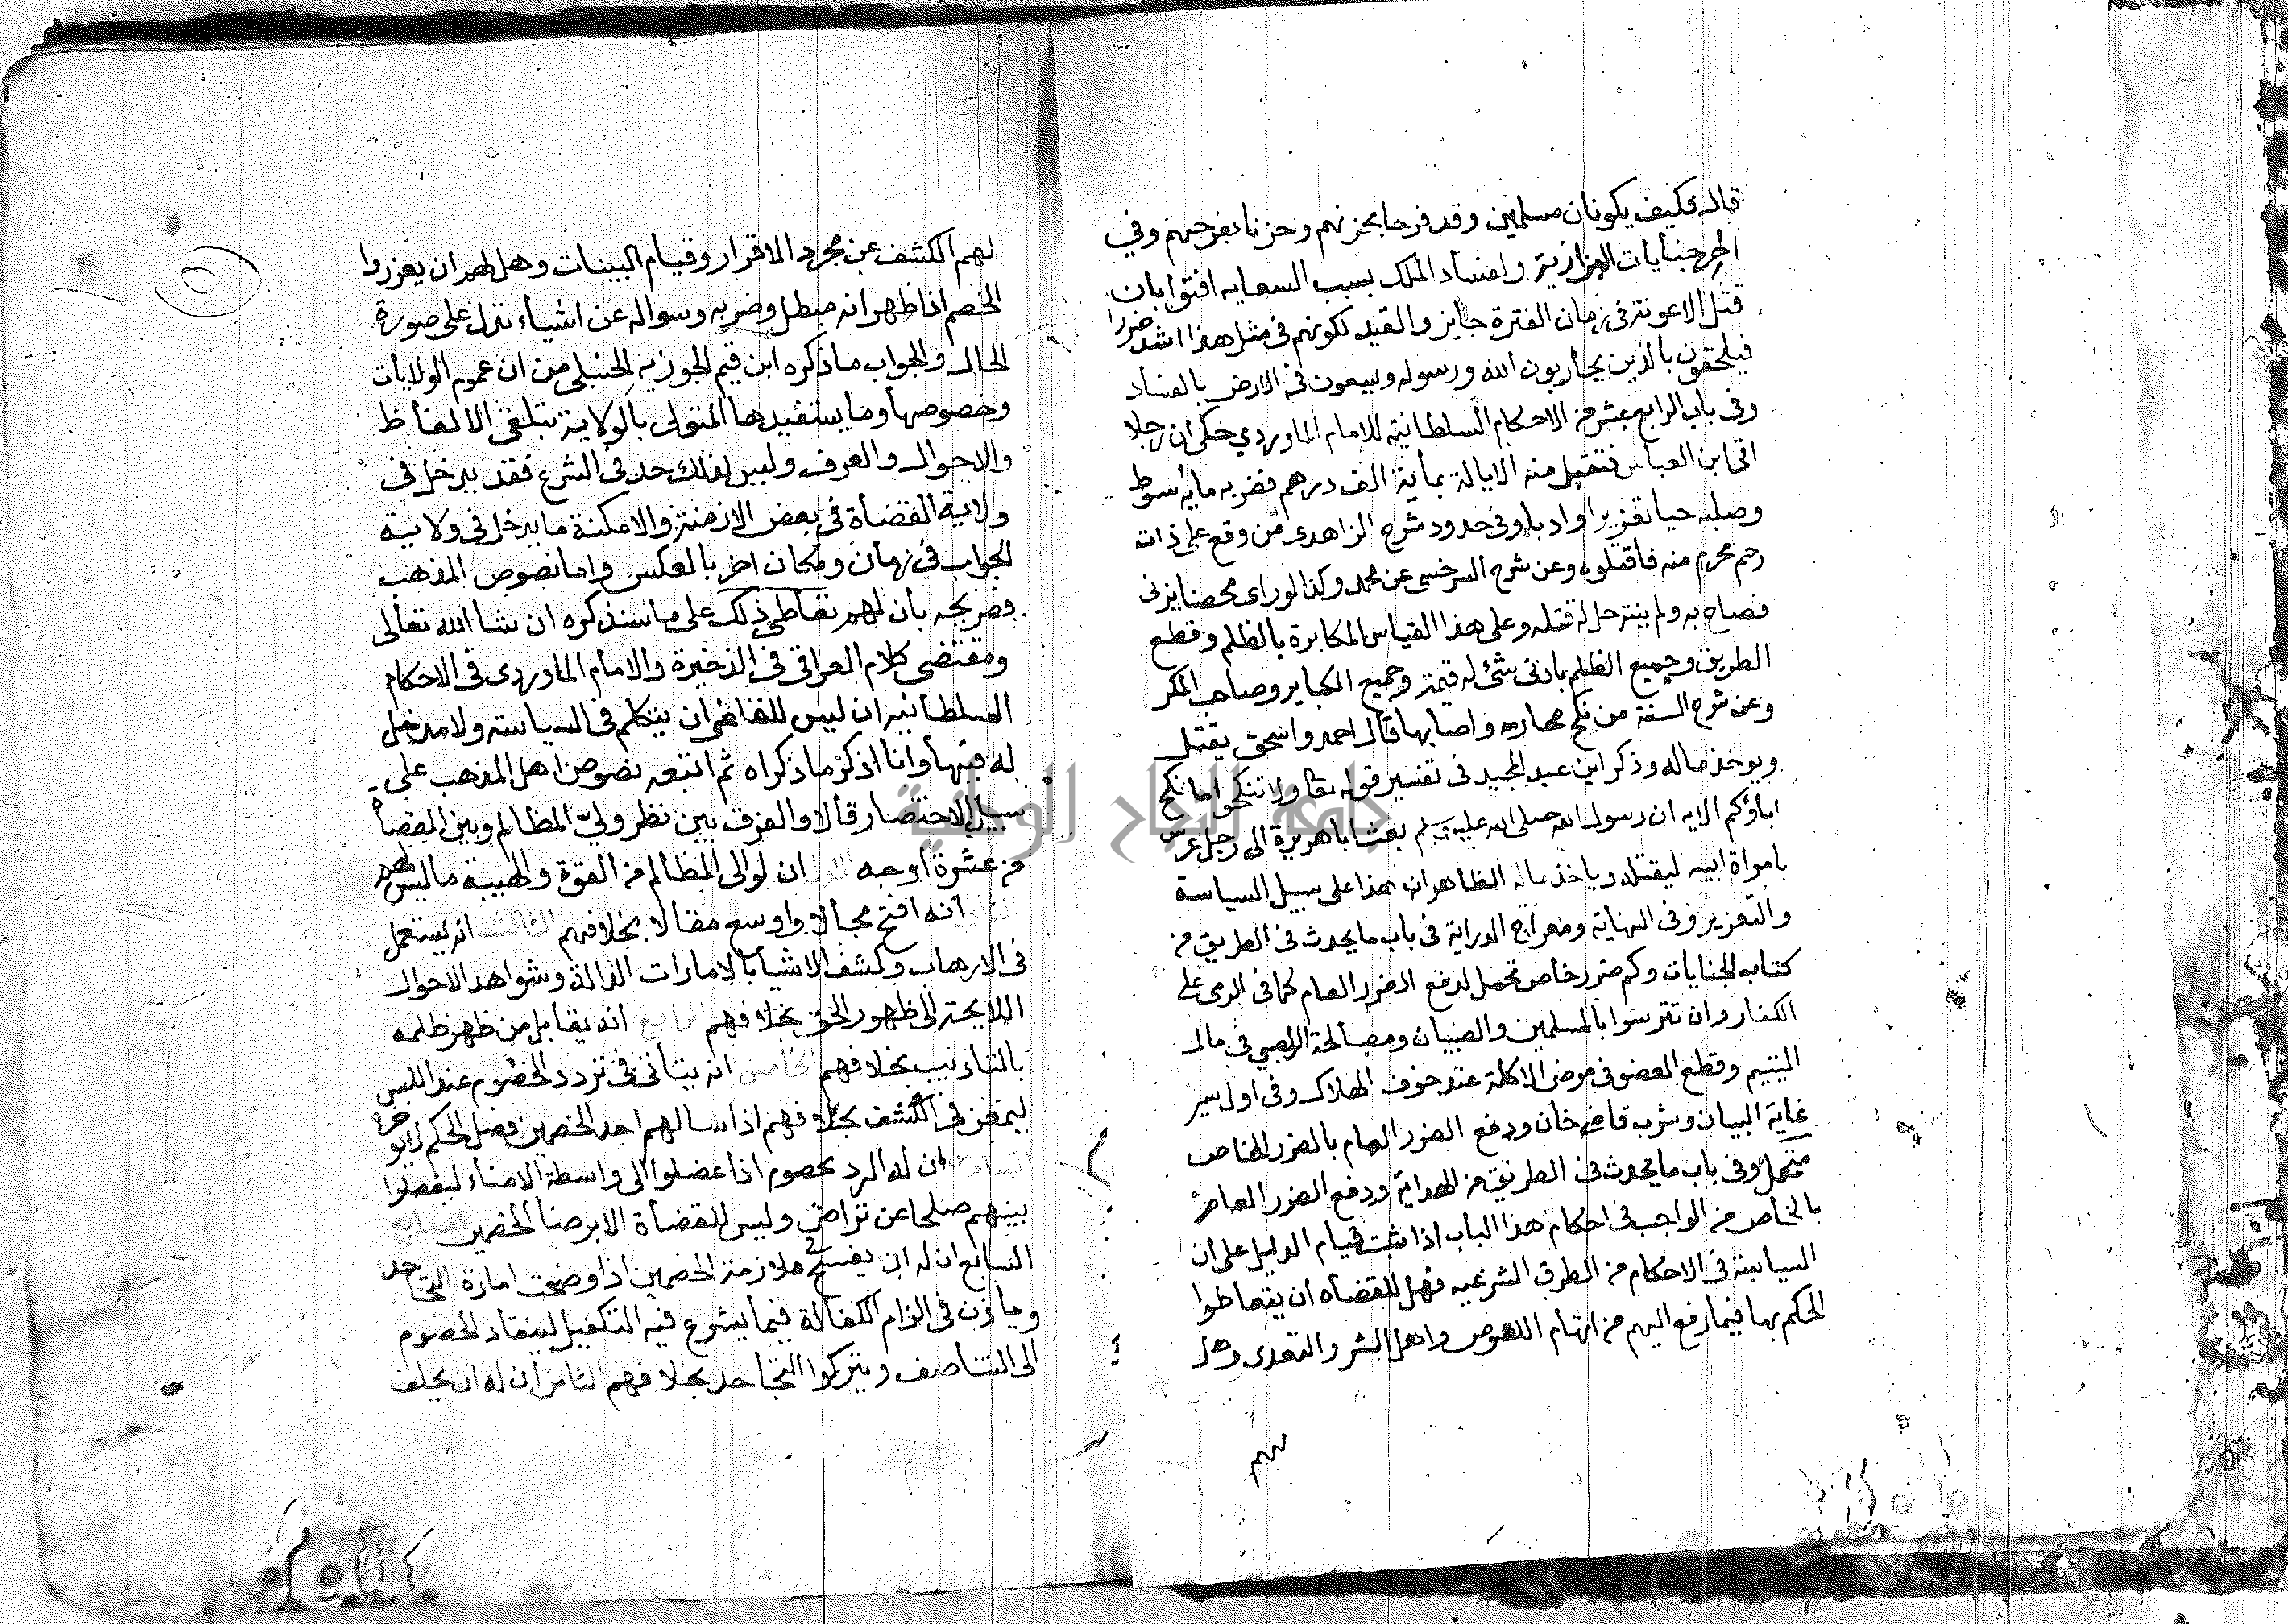 قال فكيف يكونان مسلمين وقد فرحا بحزنهم وحزنا بفرحهم وفي
اخر جنايات البزازية ولفساد الملك بسبب السعايه افتوا بان
قتل الاعونة في زمان الفترة جايز والقيد لكونهم في مثل هذا اشد ضررا
فيلحقون بالذين يحاربون الله ورسوله ويسعون في الارض بالفساد
وفي باب الرابع عشر من الاحكام السلطانية للامام الماوردي حكي ان رجلا
اتى ابن العباس فتقبل منه الايالة بماية الف درهم فضربه مايه سوط
وصلبه حيا تعزيرا وادبا وفي حدود شرح الزاهدي من وقع على ذات
رحم محرم منه فاقتلوه وعن شرح السرخسي عن محمد وكذا لو راى محصنا يزني
فصاح به ولم ينته حل له قتله وعلى هذا القياس المكابرة بالظلم وقطع
الطريق وجميع الظلم بادنى شئ له قيمة وجميع الكباير وصاحب المكر
وعن شرح السنة من نكح محارمه واصابها قال احمد واسحق يقتل
ويوخذ ماله وذكر ابن عبد المجيد في تفسير قوله تعا ولا تنكحوا ما نكح
اباؤكم الايه ان رسول الله صلى الله عليه وسلم بعث ابا هريرة الى رجل عرس
بامراة ابيه ليقتله وياخذ ماله الظاهر ان هذا على سبيل السياسة
والتعزير وفي النهاية ومعراج الدراية في باب ما يحدث في الطريق من
كتاب الجنايات وكم ضرر خاص تحمل لدفع الضرر العام كما في الرمى على
الكفار وان تترسوا بالمسلمين والصبيان ومصالحة الوصي في مال
اليتيم وقطع العضو في مرض الاكلة عند خوف الهلاك وفي اول سير
غاية البيان وشرب قاضيخان ودفع الضرر العام بالضرر الخاص
متحمل وفي باب ما يحدث في الطريق من الهداية ودفع الضرر العام
بالخاص من الواجب في احكام هذا الباب اذا ثبت قيام الدليل على أن
السياسة في الاحكام من الطرق الشرعيه فهل للقضاه ان يتعاطوا
الحكم بها فيما رفع اليهم من اتهام اللصوص واهل الشر والتعدى وهل
لهم
لهم الكشف عن مجرد الاقرار وقيام البينات وهل لهم ان يعزروا
الخصم اذا ظهر انه مبطل وضربه وسواله عن اشياء تدل على صورة
الحال والجواب ما ذكره ابن قيم الجوزيه الحنبلي من ان عموم الولايات
وخصوصها وما يستفيدها المتولى بالولاية تتلقى الالفاظ
والاحوال والعرف وليس لذلك حد في الشرع فقد يدخل في
ولاية القضاة في بعض الازمنة والامكنة ما يدخل في ولاية
الجواب في زمان ومكان اخر بالعكس واما نصوص المذهب
فصريحه بأن لهم تعاطي ذلك على ما سنذكره ان شا الله تعالى
ومقتضى كلام العراقي في الذخيرة والامام الماوردى في الاحكام
السلطانيه ان ليس للقاضي ان يتكلم في السياسة ولا مدخل
له فيها وانا اذكر ما ذكراه ثم اتبعه نصوص اهل المذهب على
سبيل الاختصار قالا والفرق بين نظر ولي المظالم وبين القضا
من عشرة اوجه ان لوالى المظالم من القوة والهيبة ما ليس لهم
انه افتح مجالا واوسع مقالا بخلافهم الثالث انه يستعمل
في الارهاب وكشف الاشيا بالامارات الدالة وشواهد الاحوال
اللايحة الى ظهور الحق بخلافهم الرابع انه يقابل من ظهر ظلمه
بالتاديب بخلافهم الخامس انه يتأنى في تردد الخصوم عند اللبس
ليمعن في الكشف بخلافهم اذا سالهم احد الخصمين فصل الحكم لا يوخره
السادس ان له الرد بخصوم اذا عضلوا الى واسطة الامناء ليفصلوا
بينهم صلحا عن تراض وليس للقضاة الا برضا الخصمين السابع
السابع ان له ان يفسح في ملازمة الخصمين اذا وضحت امارة التجاحد
ويأذن في الزام الكفالة فيما يشرع فيه التكفيل لينقاد الخصوم
الى التناصف ويتركوا التجاحد بخلافهم الثامن ان له ان يحلف
جامعة النجاح الوطنية